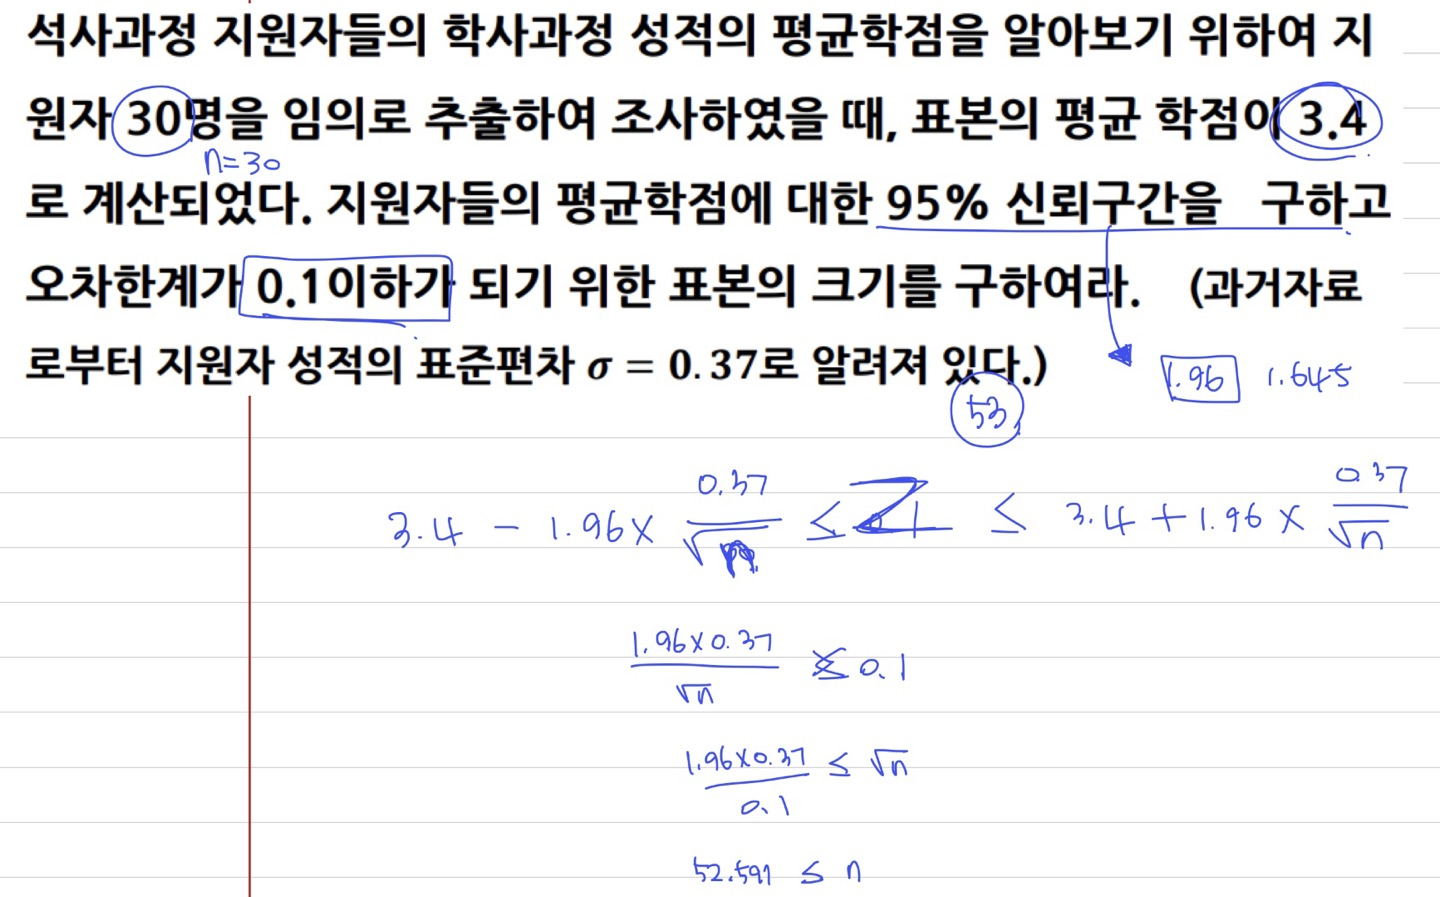 석사과정 지원자들의 학사과정 성적의 평균학점을 알아보기 위하여 지
원자 30명을 임의로 추출하여 조사하였을 때, 표본의 평균 학점이 3.4
n=30
로 계산되었다. 지원자들의 평균학점에 대한 95% 신뢰구간을 구하고
오차한계가 0.1이하가 되기 위한 표본의 크기를 구하여라. (과거자료
로부터 지원자 성적의 표준편차 σ = 0.37로 알려져 있다.)
1.96 1.645
53
3.4 - 1.96 × 0.37/√n ≤ ≤ 3.4 + 1.96 × 0.37/√n
1.96×0.37/√n ≤ 0.1
1.96×0.37/0.1 ≤ √n
52.591 ≤ n